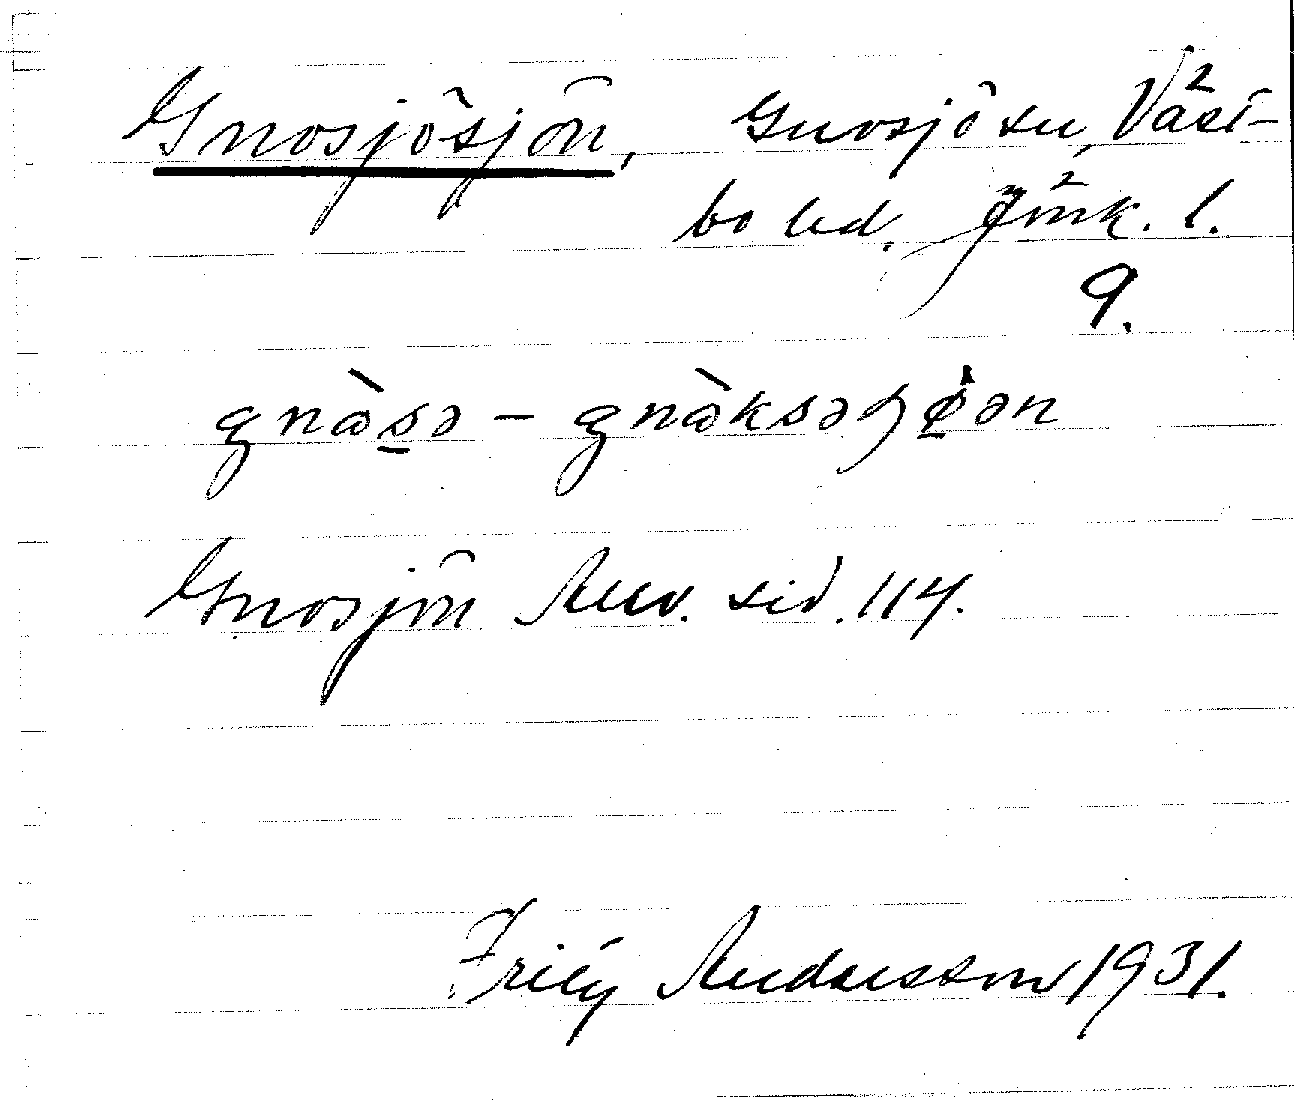 Gnosjösjön, Gnosjö sn, Väst-
bo hd. Jönk. l.
9.
gnòs̠ə – gnòksəɧø̠̀ən
Gnosjön Arv. sid. 114.
Frity Andersson 1931.